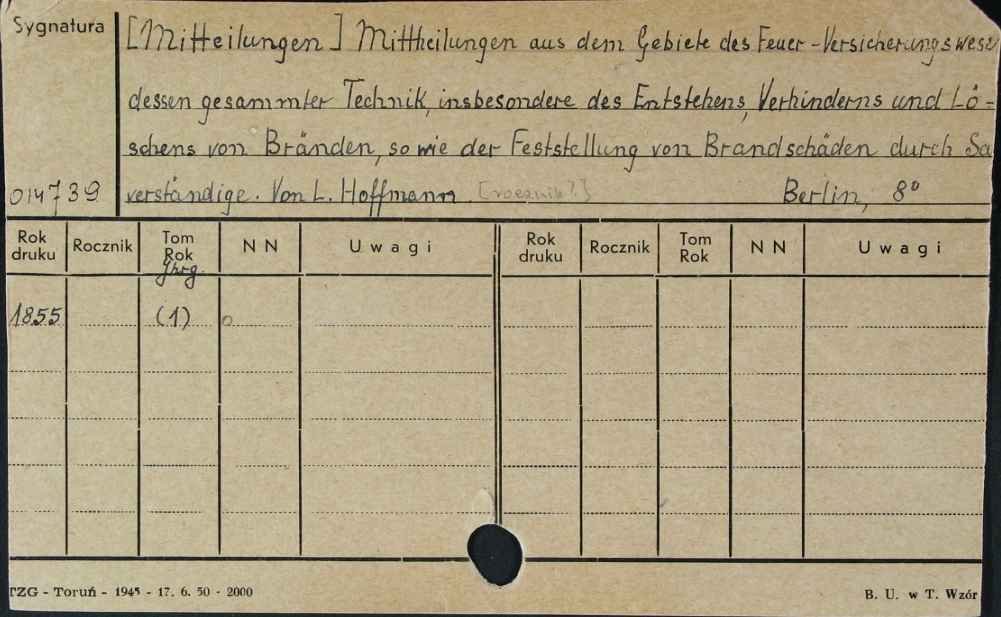 Sygnatura
[Mitteilungen] Mittheilungen aus dem Gebiete des Feuer-Versicherungswese
dessen gesammter Technik, insbesondere des Entstehens, Verhinderns und Lö-
schens von Bränden, so wie der Feststellung von Brandschäden durch Sa
014739 verständige. Von L. Hoffmann. [rocznik?] Berlin, 8°
Rok druku Rocznik Tom Rok Jhrg. N N Uwagi Rok druku Rocznik Tom Rok N N Uwagi
1855 (1) o
TZG - Toruń - 1945 - 17. 6. 50 - 2000 B. U. w T. Wzór